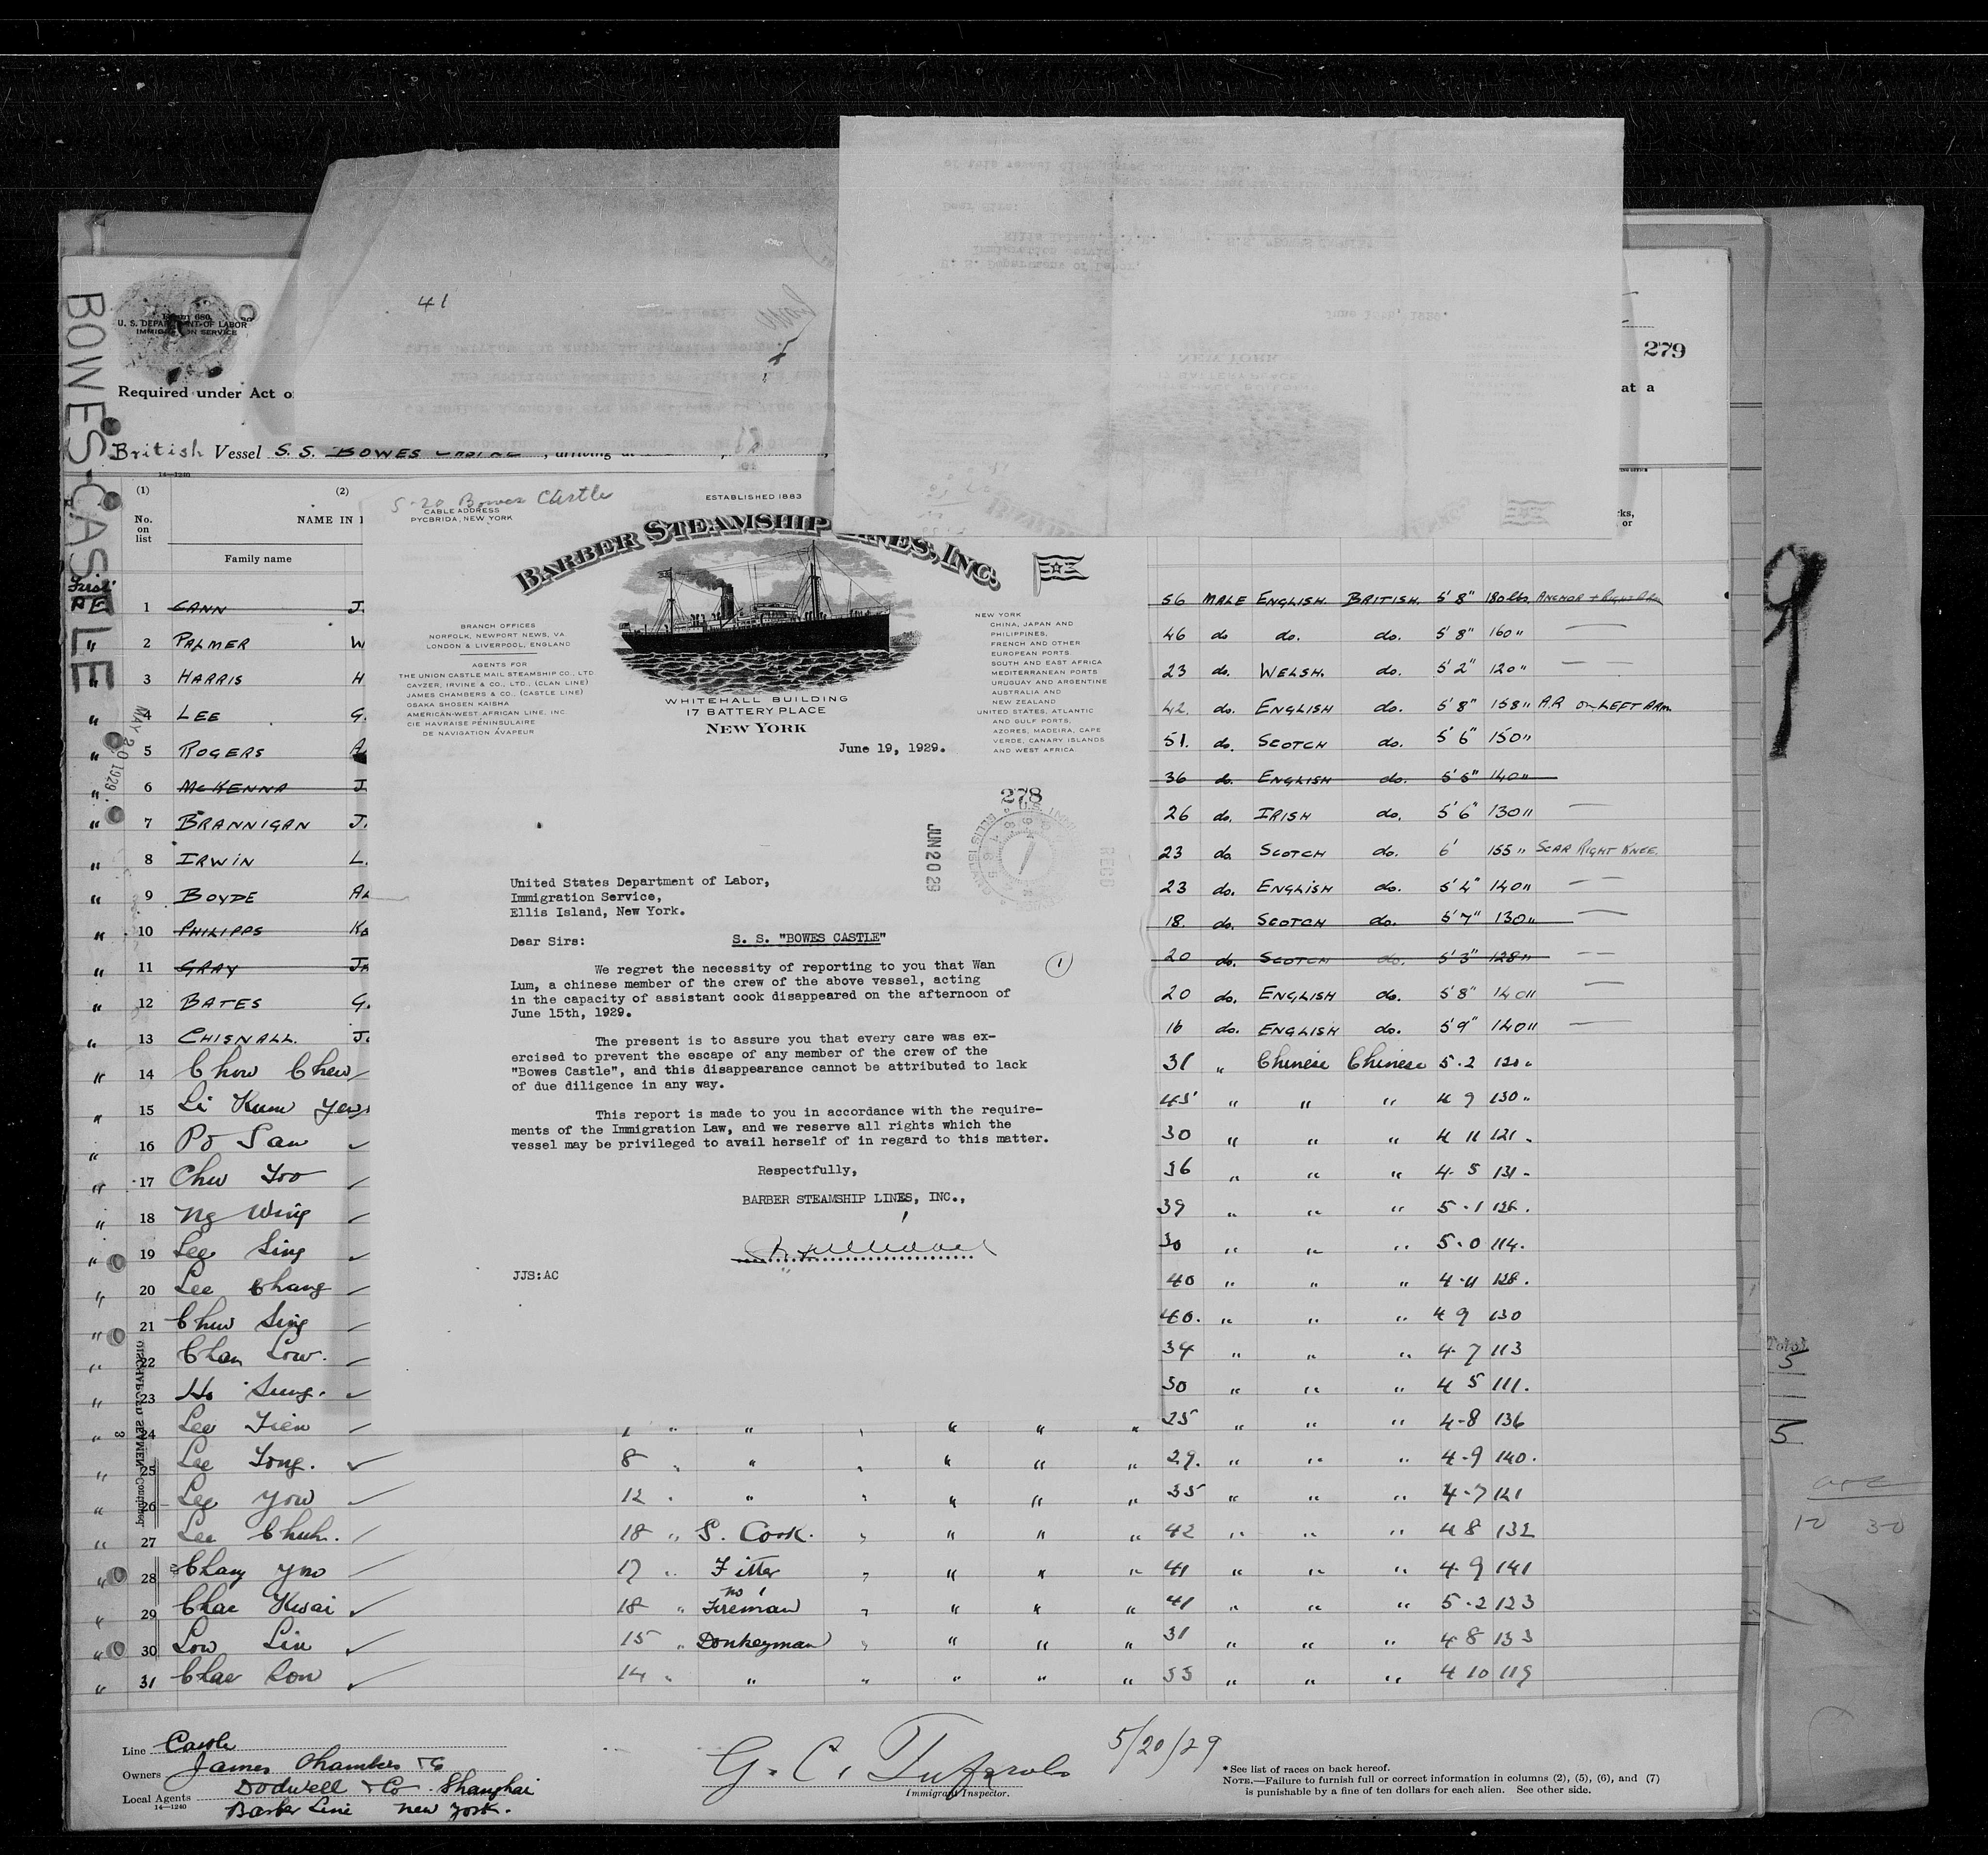 279
41
FORM 680
U. S. DEPARTMENT OF LABOR
IMMIGRATION SERVICE
Required under Act o
at a
British Vessel S. S. BOWES CASTLE, arriving at
BOWES-CASTLE
MAY 20 1929
14—1240
(1) (2)
No. on list
NAME IN
Family name
First
PE
1 CANN J. 56 MALE ENGLISH. BRITISH. 5'8" 180 lbs ANCHOR + Right Arm
" 2 PALMER W 46 do do. do. 5'8" 160 "
3 HARRIS H 23 do. WELSH. do. 5'2" 120 "
" 4 LEE G. 42. do. ENGLISH do. 5'8" 158 " A.R on LEFT ARM
" 5 ROGERS A 51. do. SCOTCH do. 5'6" 150 "
" 6 McKENNA J 36 do. ENGLISH do. 5'5" 140 "
" 7 BRANNIGAN J. 26 do. IRISH do. 5'6" 130 "
" 8 IRWIN L. 23 do. SCOTCH do. 6' 155 " SCAR RIGHT KNEE.
" 9 BOYDE AL 23 do. ENGLISH do. 5'4" 140 "
" 10 PHILIPPS 18. do. SCOTCH do. 5'7" 130 "
" 11 GRAY JA 20 do. SCOTCH do. 5'3" 128 "
" 12 BATES G. 20 do. ENGLISH do. 5'8" 140 "
" 13 CHISNALL. J. 16 do. ENGLISH do. 5'9" 140 "
" 14 Chow Chew 31 " Chinese Chinese 5.2 120 "
" 15 Li Kum 45 " " " 4 9 130 "
" 16 Po San 30 " " " 4 11 121 "
" 17 Chu Foo 36 " " " 4.5 131
" 18 Ng Wing 39 " " " 5.1 126.
" 19 Lee Sing 30 " " " 5.0 114.
" 20 Lee Chang 40 " " " 4.11 128.
" 21 Chew Sing 40. " " " 4 9 130
" 22 Chan Low. 34 " " " 4.7 113
" 23 Ho Sung. 30 " " " 4 5 111.
" 24 Lee Tien " " " " " " 25 " " " 4-8 136
" 25 Lee Tong. 8 " " " " " " 29. " " " 4.9 140.
" 26 Lee Yow 12 " " " " " " 35 " " " 4.7 121
" 27 Lee Chuh. 18 " S. Cook. " " " " 42 " " " 4 8 132
" 28 Chang Yno 17 " Fitter " " " " 41 " " " 4.9 141
" 29 Chae Kwai 18 " No 1 Fireman " " " " 41 " " " 5.2 123
" 30 Low Lin 15 " Donkeyman " " " " 31 " " " 4 8 133
" 31 Chae Son 14 " " " " " " 55 " " " 4 10 119
DISCHARGED SEAMEN—Continued
3
5-20 Bowes Castle
ESTABLISHED 1883
CABLE ADDRESS
PYCBRIDA, NEW YORK
BARBER STEAMSHIP LINES, INC.
BRANCH OFFICES
NORFOLK, NEWPORT NEWS, VA
LONDON & LIVERPOOL, ENGLAND
AGENTS FOR
THE UNION CASTLE MAIL STEAMSHIP CO., LTD
CAYZER, IRVINE & CO., LTD., (CLAN LINE)
JAMES CHAMBERS & CO., (CASTLE LINE)
OSAKA SHOSEN KAISHA
AMERICAN-WEST AFRICAN LINE, INC.
CIE HAVRAISE PÉNINSULAIRE
DE NAVIGATION ÀVAPEUR
WHITEHALL BUILDING
17 BATTERY PLACE
NEW YORK
NEW YORK
CHINA, JAPAN AND
PHILIPPINES,
FRENCH AND OTHER
EUROPEAN PORTS.
SOUTH AND EAST AFRICA
MEDITERRANEAN PORTS
URUGUAY AND ARGENTINE
AUSTRALIA AND
NEW ZEALAND
UNITED STATES, ATLANTIC
AND GULF PORTS,
AZORES, MADEIRA, CAPE
VERDE, CANARY ISLANDS
AND WEST AFRICA.
June 19, 1929.
278
JUN 20 29
REC'D
United States Department of Labor,
Immigration Service,
Ellis Island, New York.
Dear Sirs: S. S. "BOWES CASTLE"
We regret the necessity of reporting to you that Wan
1
Lum, a chinese member of the crew of the above vessel, acting
in the capacity of assistant cook disappeared on the afternoon of
June 15th, 1929.
The present is to assure you that every care was ex-
ercised to prevent the escape of any member of the crew of the
"Bowes Castle", and this disappearance cannot be attributed to lack
of due diligence in any way.
This report is made to you in accordance with the require-
ments of the Immigration Law, and we reserve all rights which the
vessel may be privileged to avail herself of in regard to this matter.
Respectfully,
BARBER STEAMSHIP LINES, INC.,
JJS:AC
Total
5
5
10 30
Line Castle
Owners James Chambers & Co
Dodwell & Co. Shanghai
Local Agents Barber Line New York.
14—1240
G. C.
Immigrant Inspector.
5/20/29
*See list of races on back hereof.
NOTE.—Failure to furnish full or correct information in columns (2), (5), (6), and (7)
is punishable by a fine of ten dollars for each alien. See other side.